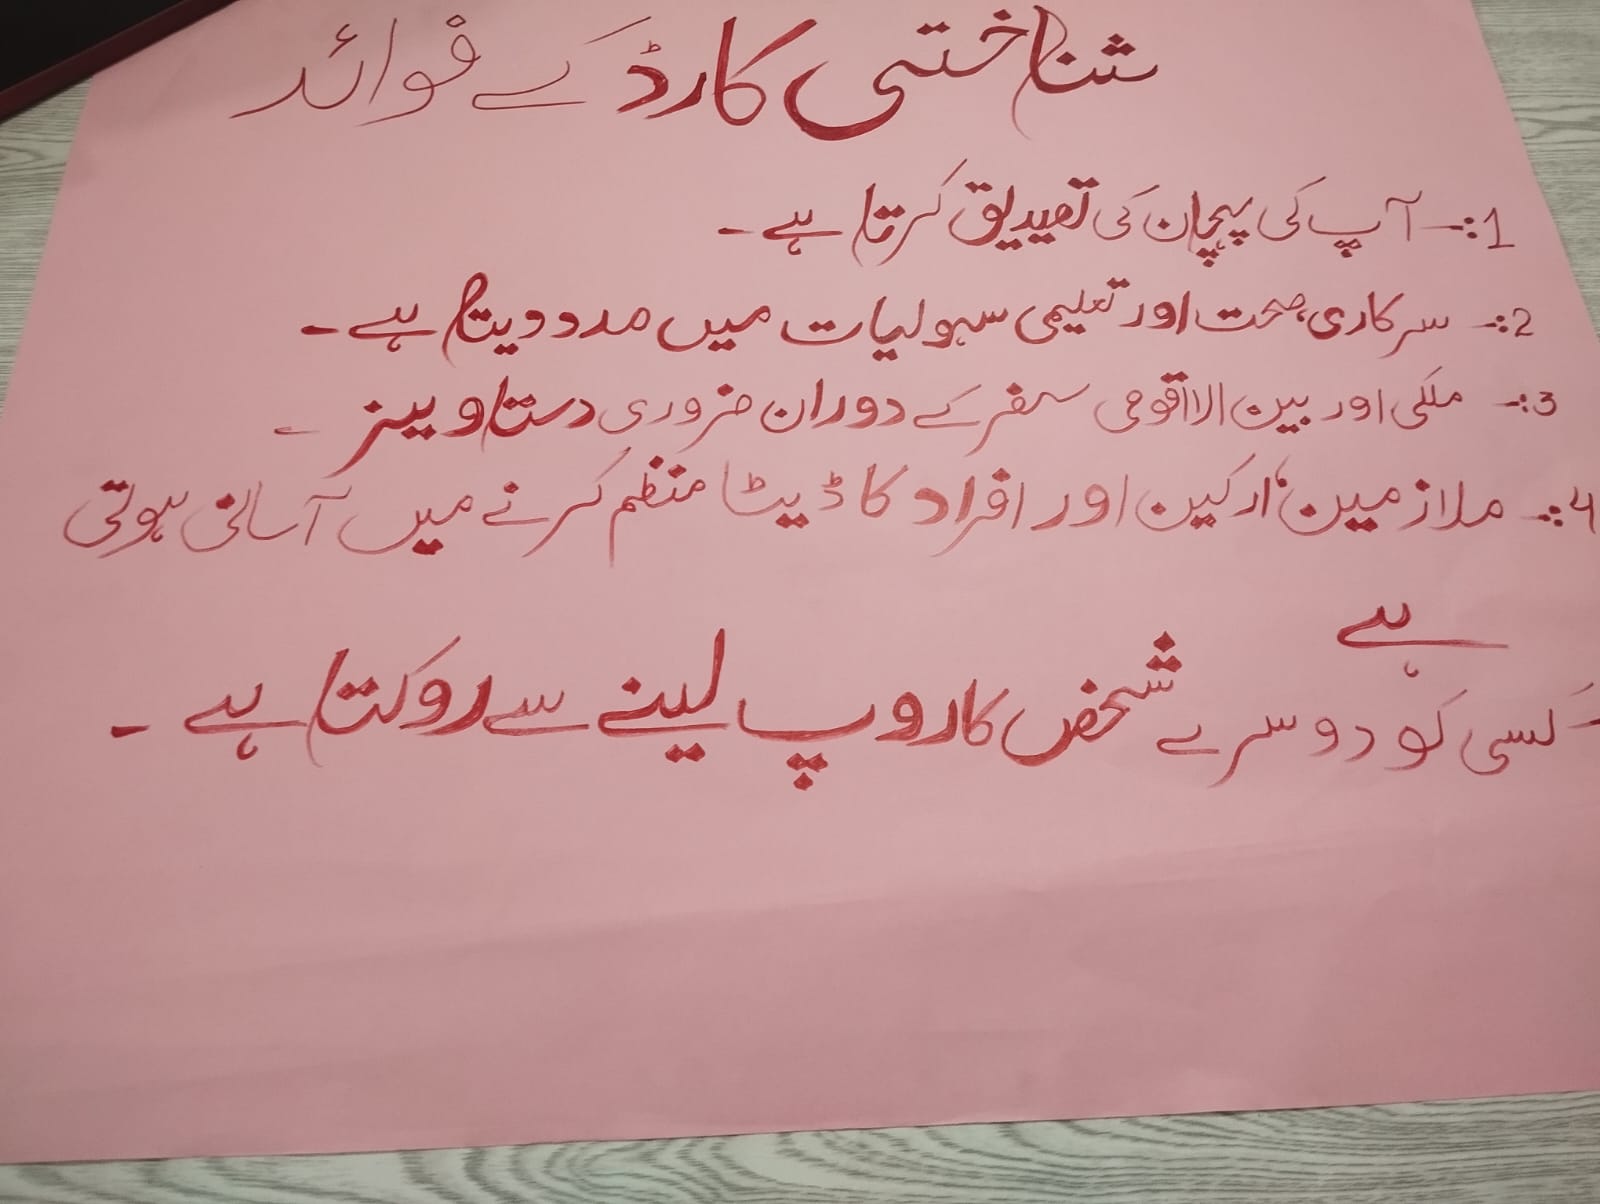 شناختی کارڈ کے فوائد
1:- آپ کی پہچان کی تصدیق کرتا ہے -
2:- سرکاری، صحت اور تعلیمی سہولیات میں مدد دیتا ہے -
3:- ملکی اور بین الااقومی سفر کے دوران ضروری دستاویز -
4:- ملازمین، ارکین اور افراد کا ڈیٹا منظم کرنے میں آسانی ہوتی
ہے
کسی کو دوسرے شخص کا روپ لینے سے روکتا ہے -